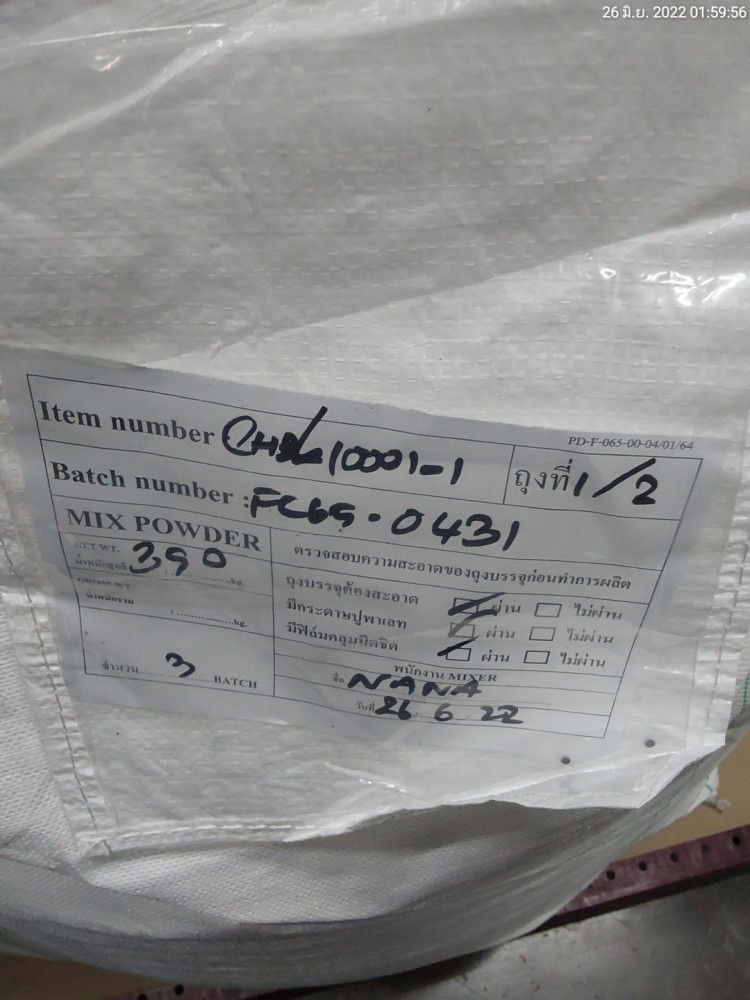 26 มิ.ย. 2022 01:59:56
PD-F-065-00-04/01/64
Item number 10001-1
ถุงที่ 1/2
Batch number : FC65-0431
MIX POWDER
NET WT.
น้ำหนักสุทธิ 390 kg.
น้ำหนักรวม : ............kg.
จำนวน 3 BATCH
ตรวจสอบความสะอาดของถุงบรรจุก่อนทำการผลิต
ถุงบรรจุต้องสะอาด ผ่าน ไม่ผ่าน
มีกระดาษปูพาเลท ผ่าน ไม่ผ่าน
มีฟิล์มคลุมปิดชิด ผ่าน ไม่ผ่าน
พนักงาน MIXER
ชื่อ NANA
วันที่ 26 6 22